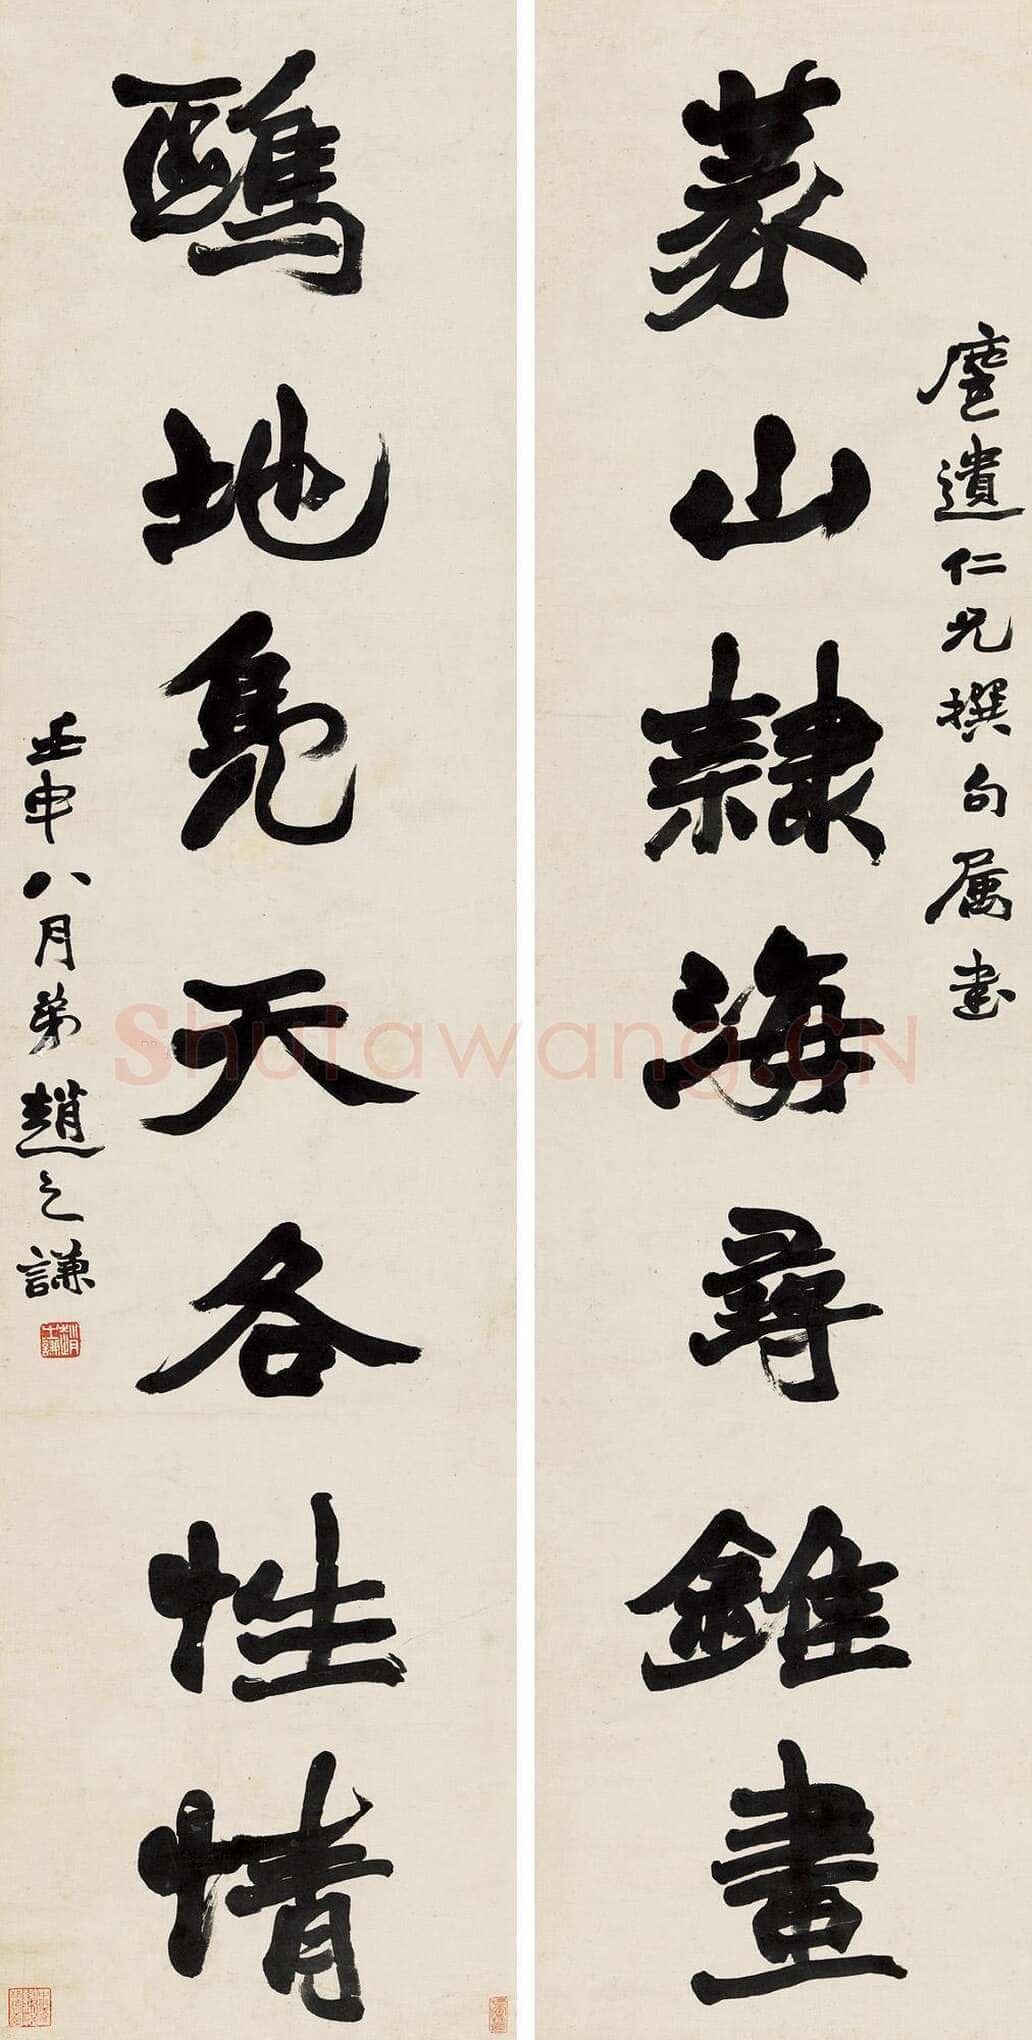 遺仁兄撰句属書
篆山隸海尋錐畫
鷗地鳧天各性情
壬申八月弟趙之謙
Shufawang.CN